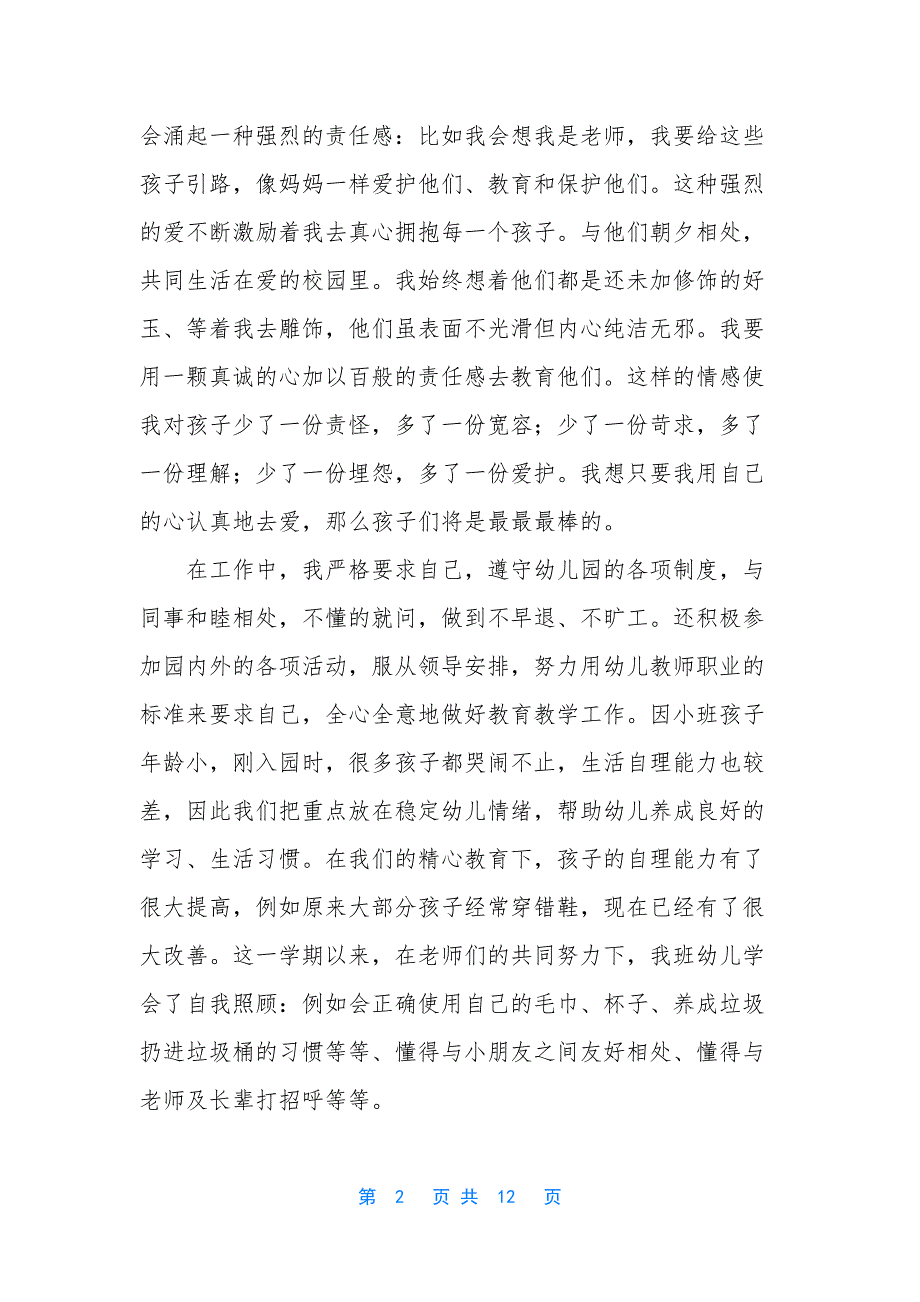 会涌起一种强烈的责任感：比如我会想我是老师，我要给这些
孩子引路，像妈妈一样爱护他们、教育和保护他们。这种强烈
的爱不断激励着我去真心拥抱每一个孩子。与他们朝夕相处，
共同生活在爱的校园里。我始终想着他们都是还未加修饰的好
玉、等着我去雕饰，他们虽表面不光滑但内心纯洁无邪。我要
用一颗真诚的心加以百般的责任感去教育他们。这样的情感使
我对孩子少了一份责怪，多了一份宽容；少了一份苛求，多了
一份理解；少了一份埋怨，多了一份爱护。我想只要我用自己
的心认真地去爱，那么孩子们将是最最最棒的。
在工作中，我严格要求自己，遵守幼儿园的各项制度，与
同事和睦相处，不懂的就问，做到不早退、不旷工。还积极参
加园内外的各项活动，服从领导安排，努力用幼儿教师职业的
标准来要求自己，全心全意地做好教育教学工作。因小班孩子
年龄小，刚入园时，很多孩子都哭闹不止，生活自理能力也较
差，因此我们把重点放在稳定幼儿情绪，帮助幼儿养成良好的
学习、生活习惯。在我们的精心教育下，孩子的自理能力有了
很大提高，例如原来大部分孩子经常穿错鞋，现在已经有了很
大改善。这一学期以来，在老师们的共同努力下，我班幼儿学
会了自我照顾：例如会正确使用自己的毛巾、杯子、养成垃圾
扔进垃圾桶的习惯等等、懂得与小朋友之间友好相处、懂得与
老师及长辈打招呼等等。
第 2 页 共 12 页